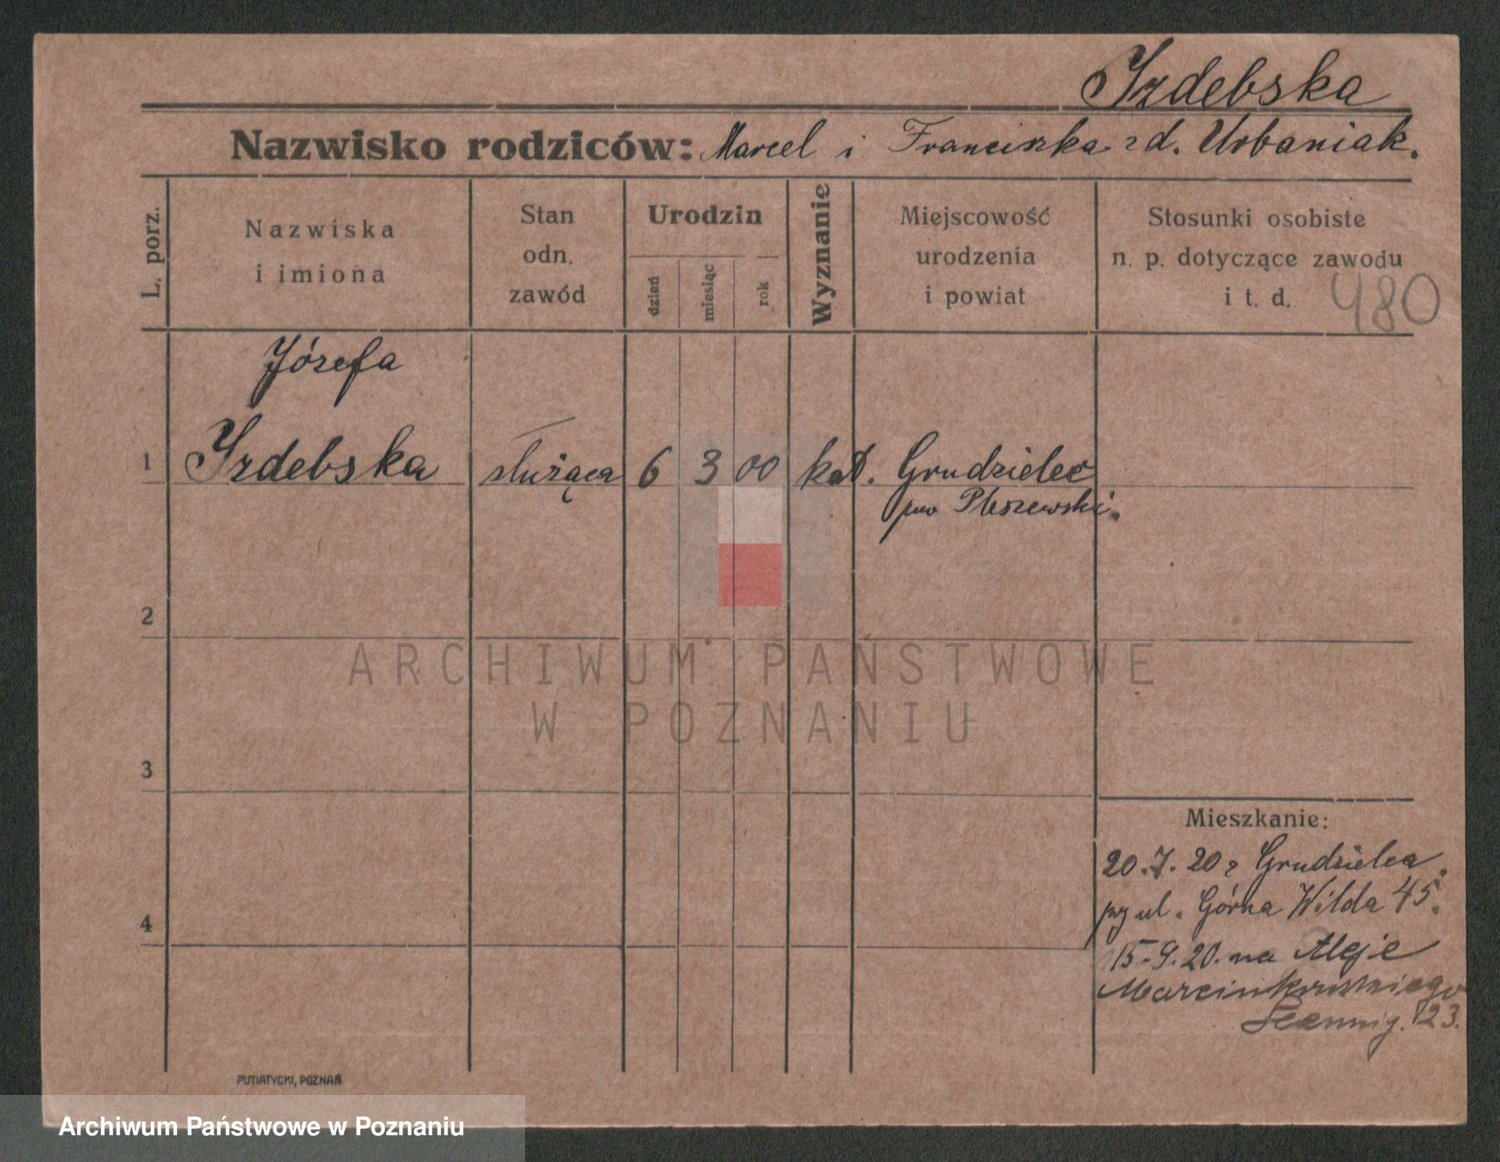 Izdebska
Nazwisko rodziców: Marcel i Franciszka z d. Urbaniak.
L. porz.
Nazwiska
i imiona
Stan
odn.
zawód
Urodzin
dzień
miesiąc
rok
Wyznanie
Miejscowość
urodzenia
i powiat
Stosunki osobiste
n. p. dotyczące zawodu
i t. d.
480
Józefa
1 Izdebska służąca 6 3 00 kat. Grudzielec
pow Pleszewski.
2
ARCHIWUM PAŃSTWOWE
W POZNANIU
3
Mieszkanie:
20.7.20 z Grudzielca
4
ul. Górna Wilda 45.
15-9.20. na Aleje
Marcinkowskiego
23.
PUTIATYCKI, POZNAŃ
Archiwum Państwowe w Poznaniu